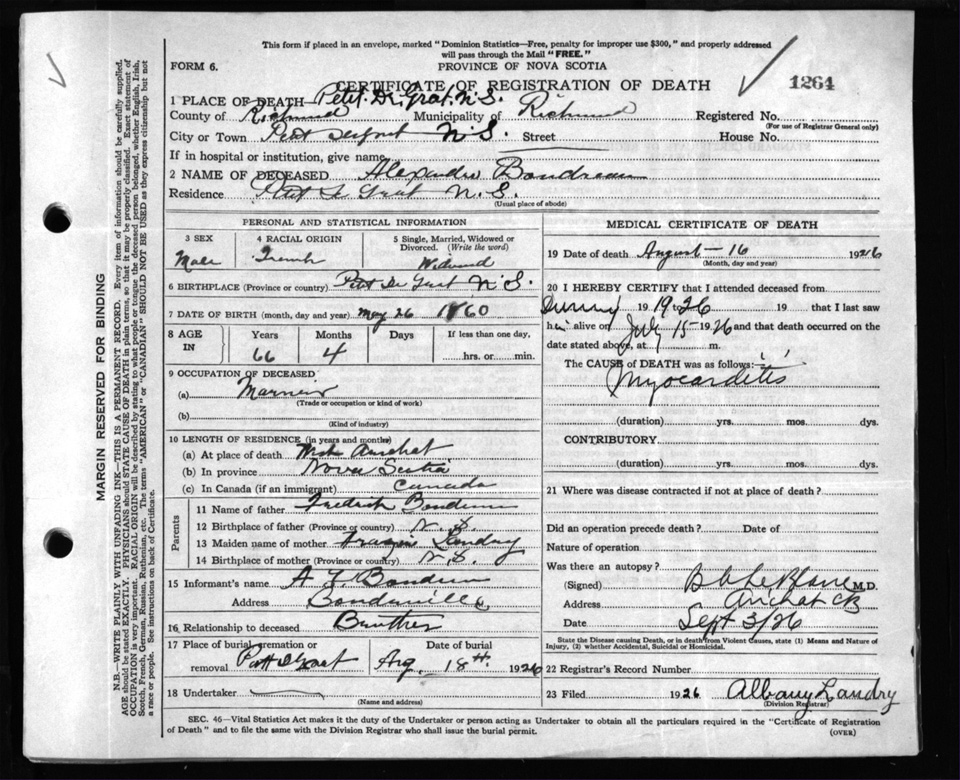 This form if placed in an envelope, marked "Dominion Statistics—Free, penalty for improper use $300," and properly addressed
will pass through the Mail "FREE."
FORM 6.
PROVINCE OF NOVA SCOTIA
CERTIFICATE OF REGISTRATION OF DEATH
1264
1 PLACE OF DEATH Petit De Grat N.S.
County of Richmond Municipality of Richmond Registered No.
(For use of Registrar General only)
City or Town Petit degrat N.S. Street House No.
If in hospital or institution, give name
2 NAME OF DECEASED Alexandre Boudreau
Residence Petit de Grat N.S.
(Usual place of abode)
PERSONAL AND STATISTICAL INFORMATION
3 SEX
Male
4 RACIAL ORIGIN
French
5 Single, Married, Widowed or
Divorced. (Write the word)
Widowed
6 BIRTHPLACE (Province or country) Petit De Grat N.S.
7 DATE OF BIRTH (month, day and year) May 26 1860
8 AGE
IN
Years
66
Months
4
Days
If less than one day,
hrs. or min.
9 OCCUPATION OF DECEASED
(a)
(Trade or occupation or kind of work)
(b)
(Kind of industry)
10 LENGTH OF RESIDENCE (in years and months)
(a) At place of death West Arichat
(b) In province Nova Scotia
(c) In Canada (if an immigrant) Canada
Parents
11 Name of father Fredrick Boudreau
12 Birthplace of father (Province or country) N.S.
13 Maiden name of mother Landry
14 Birthplace of mother (Province or country) N.S.
15 Informant's name A Boudreau
Address Boudreauville
16 Relationship to deceased Brother
17 Place of burial, cremation or
removal Petit deGrat
Date of burial
Aug 18th 1926
18 Undertaker
(Name and address)
MEDICAL CERTIFICATE OF DEATH
19 Date of death August—16 1926
(Month, day and year)
20 I HEREBY CERTIFY that I attended deceased from
During 1926 19 that I last saw
him alive on July 15 1926 and that death occurred on the
date stated above, at m.
The CAUSE of DEATH was as follows:
Myocarditis
(duration) yrs. mos. dys.
CONTRIBUTORY
(duration) yrs. mos. dys.
21 Where was disease contracted if not at place of death?
Did an operation precede death? Date of
Nature of operation
Was there an autopsy?
(Signed) LeBlanc M.D.
Address Arichat CB
Date Sept 3/26
State the Disease causing Death, or in death from Violent Causes, state (1) Means and Nature of
Injury, (2) whether Accidental, Suicidal or Homicidal.
22 Registrar's Record Number
23 Filed 1926 Albany Landry
(Division Registrar)
SEC. 46—Vital Statistics Act makes it the duty of the Undertaker or person acting as Undertaker to obtain all the particulars required in the "Certificate of Registration
of Death" and to file the same with the Division Registrar who shall issue the burial permit.
(OVER)
MARGIN RESERVED FOR BINDING
N.B.—WRITE PLAINLY WITH UNFADING INK—THIS IS A PERMANENT RECORD. Every item of information should be carefully supplied.
AGE should be stated EXACTLY. PHYSICIANS should STATE CAUSE OF DEATH in plain terms, so that it may be properly classified. Exact statement of
OCCUPATION is very important. RACIAL ORIGIN will be described by stating to what people or tongue the deceased person belonged, whether English, Irish,
Scotch, French, German, Russian, Ruthenian, etc. The terms "AMERICAN" or "CANADIAN" SHOULD NOT BE USED as they express citizenship but not
a race or people. See instructions on back of Certificate.